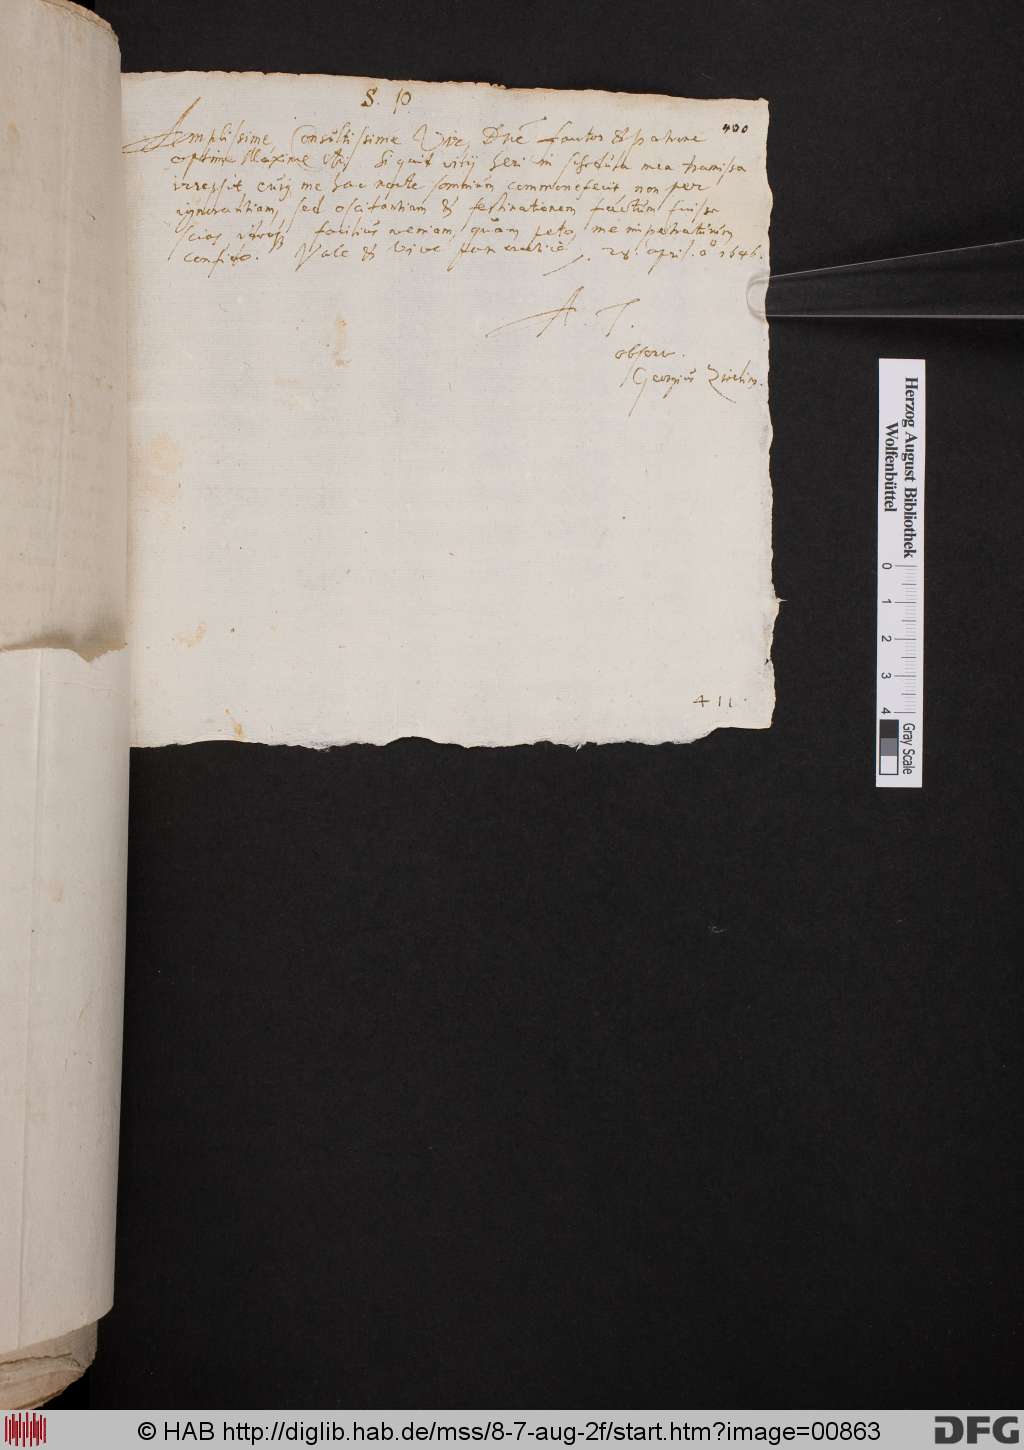 S. P.
400
Amplissime, Consultissime Vir, Dne fautor & patrone
optime Maxime. Si quid vitij heri in schedula mea transmissa
irrepsit, cuiq me hac nocte somnium commonefecit, non per
ignorantiam, sed oscitantiam & festinationem factum fuisse
scias, facilius veniam, quam peto, me impetraturum
confido. Vale & vive 28. April. aº 1646.
A. T.
observ.
Georgius
411
Herzog August Bibliothek
Wolfenbüttel
0 1 2 3 4
Gray Scale
© HAB http://diglib.hab.de/mss/8-7-aug-2f/start.htm?image=00863
DFG